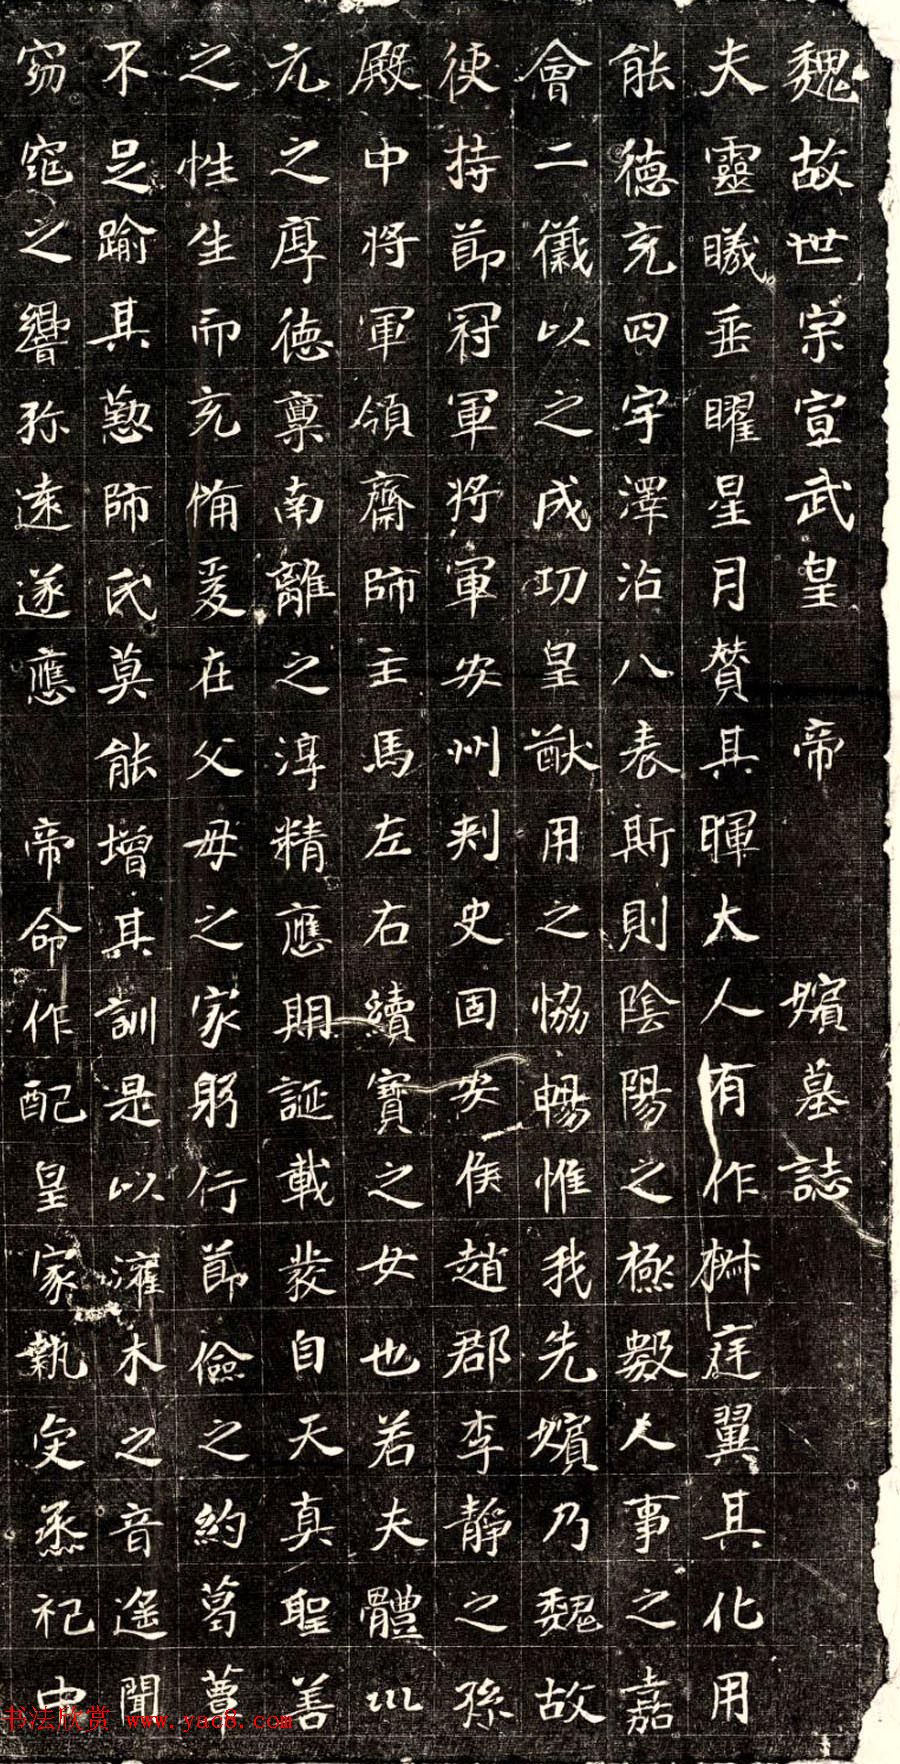 魏故世宗宣武皇帝嬪墓誌
夫靈曦垂曜星月賛其暉大人有作椒庭翼其化用
能德充四宇澤沾八表斯則陰陽之極數人事之嘉
會二儀以之成功皇猷用之協暢惟我先嬪乃魏故
使持節冠軍將軍安州刺史固安侯趙郡李靜之孫
殿中將軍領齋師主馬左右續寶之女也若夫體巛
元之厚德稟南離之淳精應期誕載發自天真聖善
之性生而充備爰在父母之家躬行節儉之約葛蕈
不足踰其懃師氏莫能增其訓是以灌木之音遥聞
窈窕之響弥遠遂應帝命作配皇家執爨烝祀中
书法欣赏 www.yac8.com